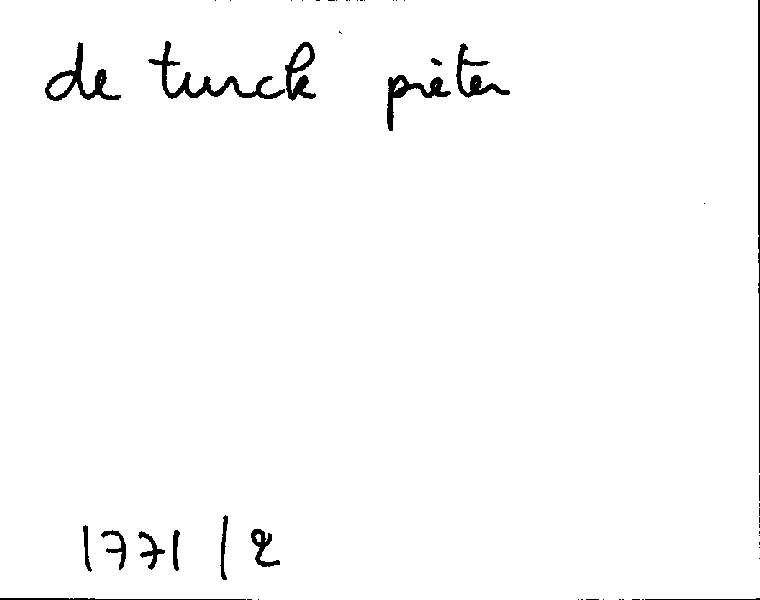 de turck pieter
1771 / 2